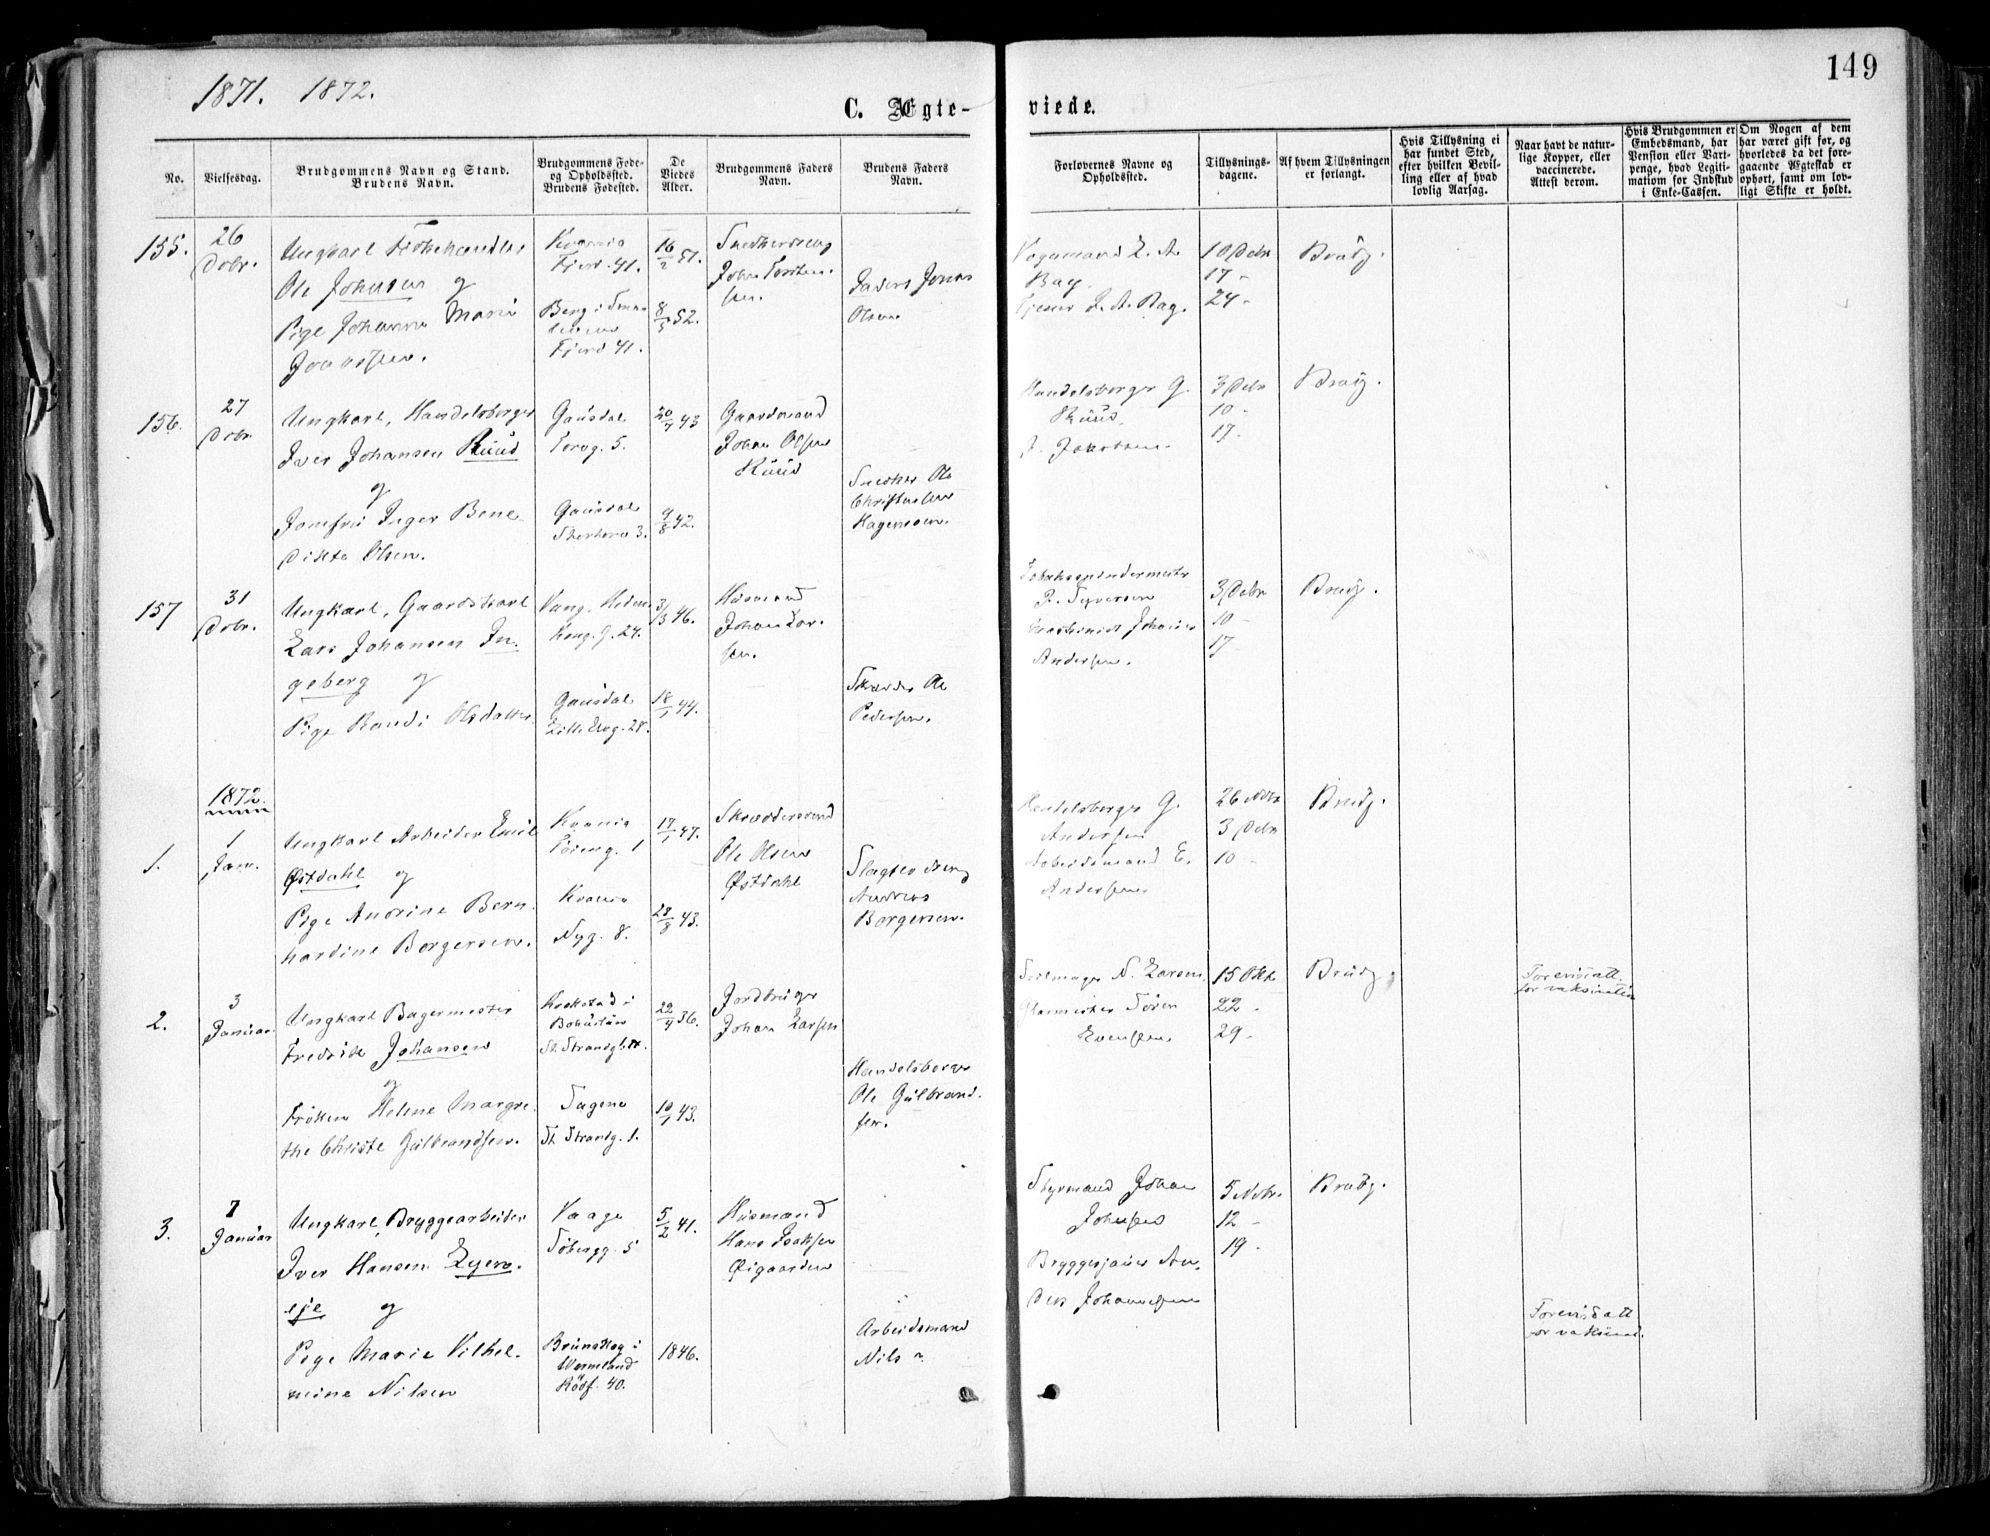 1871. 1872.
149
C. Ægte-
viede.
No.
Vielsesdag.
Brudgommens Navn og Stand.
Brudens Navn.
Brudgommens Føde-
og Opholdssted.
Brudens Fødested.
De
Viedes
Alder.
Brudgommens Faders
Navn.
Brudens Faders
Navn.
Forlovernes Navne og
Opholdssted.
Tillysnings-
dagene.
Af hvem Tillysningen
er forlangt.
Hvis Tillysning ei
har fundet Sted,
efter hvilken Bevil-
ling eller af hvad
lovlig Aarsag.
Naar havt de natur-
lige Kopper, eller
vaccinerede.
Attest derom.
Hvis Brudgommen er
Embedsmand, har
Pension eller Vart-
penge, hvad Legiti-
mation for Indskud
i Enke-Cassen.
Om Nogen af dem
har været gift før, og
hvorledes da det fore-
gaaende Ægteskab er
ophørt, samt om lov-
ligt Skifte er holdt.
155.
26
Dcbr.
Ungkarl Fiskehandler
Ole Johnsen og
Pige Johanne Marie
Jonassen.
Fjerd. 41.
Berg i Smaa-
Fjerd 41.
16/2 51.
8/5 52.
Snedkersvend
John
sen.
Jonas
Olsen
Bay.
Tjener L. A. Bay.
10 Decbr
17 -
24 -
Brudg.
156.
27
Dcbr
Ungkarl, Handelsborger
Iver Johansen Ruud
og
Jomfru Inger Bene-
dikte Olsen.
Gausdal
Torvg. 5.
Gausdal
3.
20/7 43
9/8 42.
Gaardmand
Johan Olsen
Ruud
Snedker Ole
Christensen
Hagemoen.
Handelsborger G.
Ruud.
J. Jakobsen.
3 Decbr
10 -
17 -
Brudg.
157
31
Dcbr.
Ungkarl, Gaardskarl
Lars Johansen In-
geberg og
Pige Randi Olsdatter
Vang, Hedem.
Kong. G. 24.
Gausdal
Lille Elvog. 28.
3/3 46.
18/1 44.
Husmand
Johan Lar-
sen.
Skrædder Ole
Pedersen.
P. Syversen
Johannes
Andersen.
3 Decbr
10 -
17
Brudg.
1872.
1.
1
Jan.
Ungkarl Arbeider Emil
Østdahl og
Pige Andrine Bern-
hardine Borgersen.
1
Nyg. 8.
17/1 47.
28/8 43.
Skræddersvend
Ole Olsen
Østdahl
Slagtersvend
Andreas
Borgersen.
Handelsborger G.
Andersen
Arbeidsmand E.
Andersen
26 Novbr
3 Decbr
10 -
Brudg.
2.
3
Januar.
Ungkarl Bagermester
Fredrik Johansen
og
Frøken Helene Margre-
the Christe Gulbrandsen.
i
Bohuslän
Sagene
St. Strandg. 1.
22/4 36.
10/1 43.
Jordbruger
Johan Larsen
Handelsborger
Ole Gulbrand-
sen.
N. Larsen
Søren
Evensen.
15 Okt.
22 -
29 -
Brudg.
Forevist att.
for vaksination
3.
7
Januar
Ungkarl, Bryggearbeider
Iver Hansen Lyen-
eje og
Pige Marie Vilhel-
mine Nilsen
Vaage
5
Brunskog i
Wermland
Rødf. 40.
5/2 41.
1846.
Husmand
Hans Isaksen
Øigaarden
Arbeidsmand
Nils ?
Styrmand Johan
Johnsen
Bryggesjauer An-
ders Johannesen
5 Novbr.
12 -
19 -
Brudg.
Forevist att
for vaksinat.